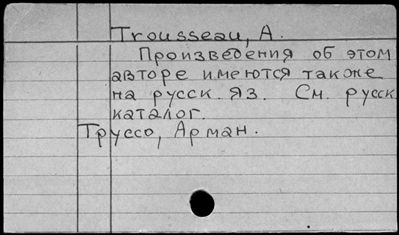 Trousseau, A.
Произведения об этом
авторе имеются также
на русск. яз. См. русск.
каталог.
Труссо, Арман.